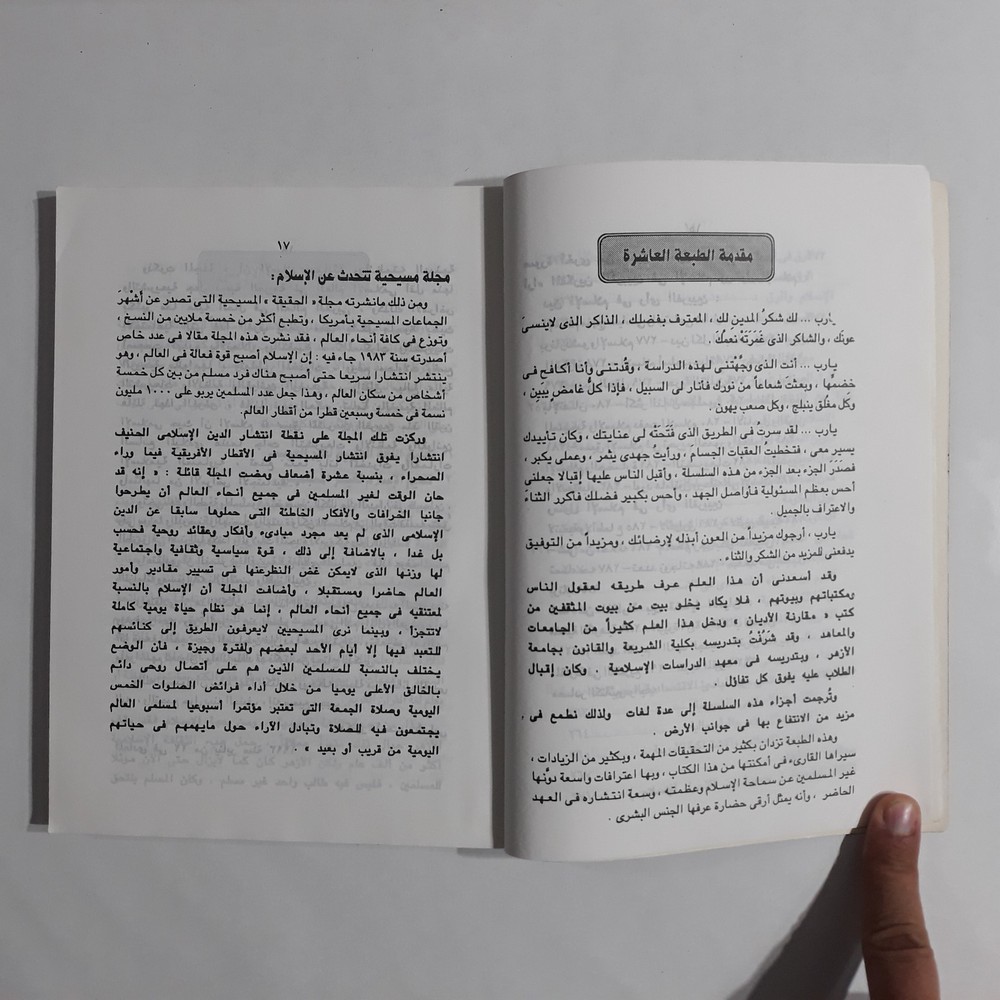 مقدمة الطبعة العاشرة
يارب ... لك شكرُ المدين لك ، المعترف بفضلك ، الذاكر الذى لاينسىَ
عونَك ، والشاكر الذى غَمَرَتْهُ نعمُكَ .
يارب ... أنت الذى وجَّهْتنى لهذه الدراسة ، وقُدتنى وأنا أكافح فى
خضمِّها ، وبعثتَ شعاعاً من نورك فأنار لى السبيل ، فإذا كلُّ غامض يَبِين ،
وكل مغْلق ينبلج ، وكل صعب يهون .
يارب ... لقد سرتُ فى الطريق الذى فَتَحتَه لى عنايتك ، وكان تأييدك
يسير معى ، فتخطيتُ العقبات الجسامَ ، ورأيتُ جهدى يثمر ، وعملى يكبر ،
فصَدَرَ الجزء بعد الجزء من هذه السلسلة ، وأقبل الناس عليها إقبالا جعلنى
أحس بعظم المسئولية فأواصل الجهد ، وأحس بكبير فضلك فأكرر الثناءَ
والاعتراف بالجميل .
يارب ، أرجوك مزيداً من العون أبذله لإرضائك ، ومزيداً من التوفيق
يدفعنى للمزيد من الشكر والثناء .
وقد أسعدنى أن هذا العلم عرف طريقه لعقول الناس
ومكتباتهم وبيوتهم ، فلا يكاد يخلو بيت من بيوت المثقفين من
كتب « مقارنة الأديان » ودخل هذا العلم كثيراً من الجامعات
والمعاهد ، وقد شَرُفْتُ بتدريسه بكلية الشريعة والقانون بجامعة
الأزهر ، وبتدريسه فى معهد الدراسات الإسلامية . وكان إقبال
الطلاب عليه يفوق كل تفاؤل .
وتُرجمت أجزاء هذه السلسلة إلى عدة لغات ولذلك نطمع فى ،
مزيد من الانتفاع بها فى جوانب الأرض .
وهذه الطبعة تزدان بكثير من التحقيقات المهمة ، وبكثير من الزيادات ،
سيراها القارىء فى أمكنتها من هذا الكتاب ، وبها اعترافات واسعة دوَّنها
غير المسلمين عن سماحة الإسلام وعظمته ، وسعة انتشاره فى العهد
الحاضر ، وأنه يمثل أرقى حضارة عرفها الجنس البشرى .
١٧
مجلة مسيحية تتحدث عن الإسلام :
ومن ذلك مانشرته مجلة « الحقيقة » المسيحية التى تصدر عن أشهر
الجماعات المسيحية بأمريكا ، وتطبع أكثر من خمسة ملايين من النسخ ،
وتوزع فى كافة أنحاء العالم ، فقد نشرت هذه المجلة مقالا فى عدد خاص
أصدرته سنة ١٩٨٣ جاء فيه : إن الإسلام أصبح قوة فعالة فى العالم ، وهو
ينتشر انتشارا سريعا حتى أصبح هناك فرد مسلم من بين كل خمسة
أشخاص من سكان العالم ، وهذا جعل عدد المسلمين يربو على ١٠٠٠ مليون
نسمة فى خمسة وسبعين قطرا من أقطار العالم.
وركزت تلك المجلة على نقطة انتشار الدين الإسلامى الحنيف
انتشارا يفوق انتشار المسيحية فى الأقطار الأفريقية فيما وراء
الصحراء ، بنسبة عشرة أضعاف ومضت المجلة قائلة : « إنه قد
حان الوقت لغير المسلمين فى جميع أنحاء العالم أن يطرحوا
جانبا الخرافات والأفكار الخاطئة التى حملوها سابقا عن الدين
الإسلامى الذى لم يعد مجرد مبادىء وأفكار وعقائد روحية فحسب
بل غدا ، بالاضافة إلى ذلك ، قوة سياسية وثقافية واجتماعية
لها وزنها الذى لايمكن غض النظرعنها فى تسيير مقادير وأمور
العالم حاضرا ومستقبلا ، وأضافت المجلة أن الإسلام بالنسبة
لمعتنقيه فى جميع أنحاء العالم ، إنما هو نظام حياة يومية كاملة
لاتتجزأ ، وبينما نرى المسيحيين لايعرفون الطريق إلى كنائسهم
للتعبد فيها إلا أيام الأحد لبعضهم ولفترة وجيزة ، فان الوضع
يختلف بالنسبة للمسلمين الذين هم على أتصال روحى دائم
بالخالق الأعلى يوميا من خلال أداء فرائض الصلوات الخمس
اليومية وصلاة الجمعة التى تعتبر مؤتمرا أسبوعيا لمسلمى العالم
يجتمعون فيه للصلاة وتبادل الآراء حول مايهمهم فى حياتهم
اليومية من قريب أو بعيد » .